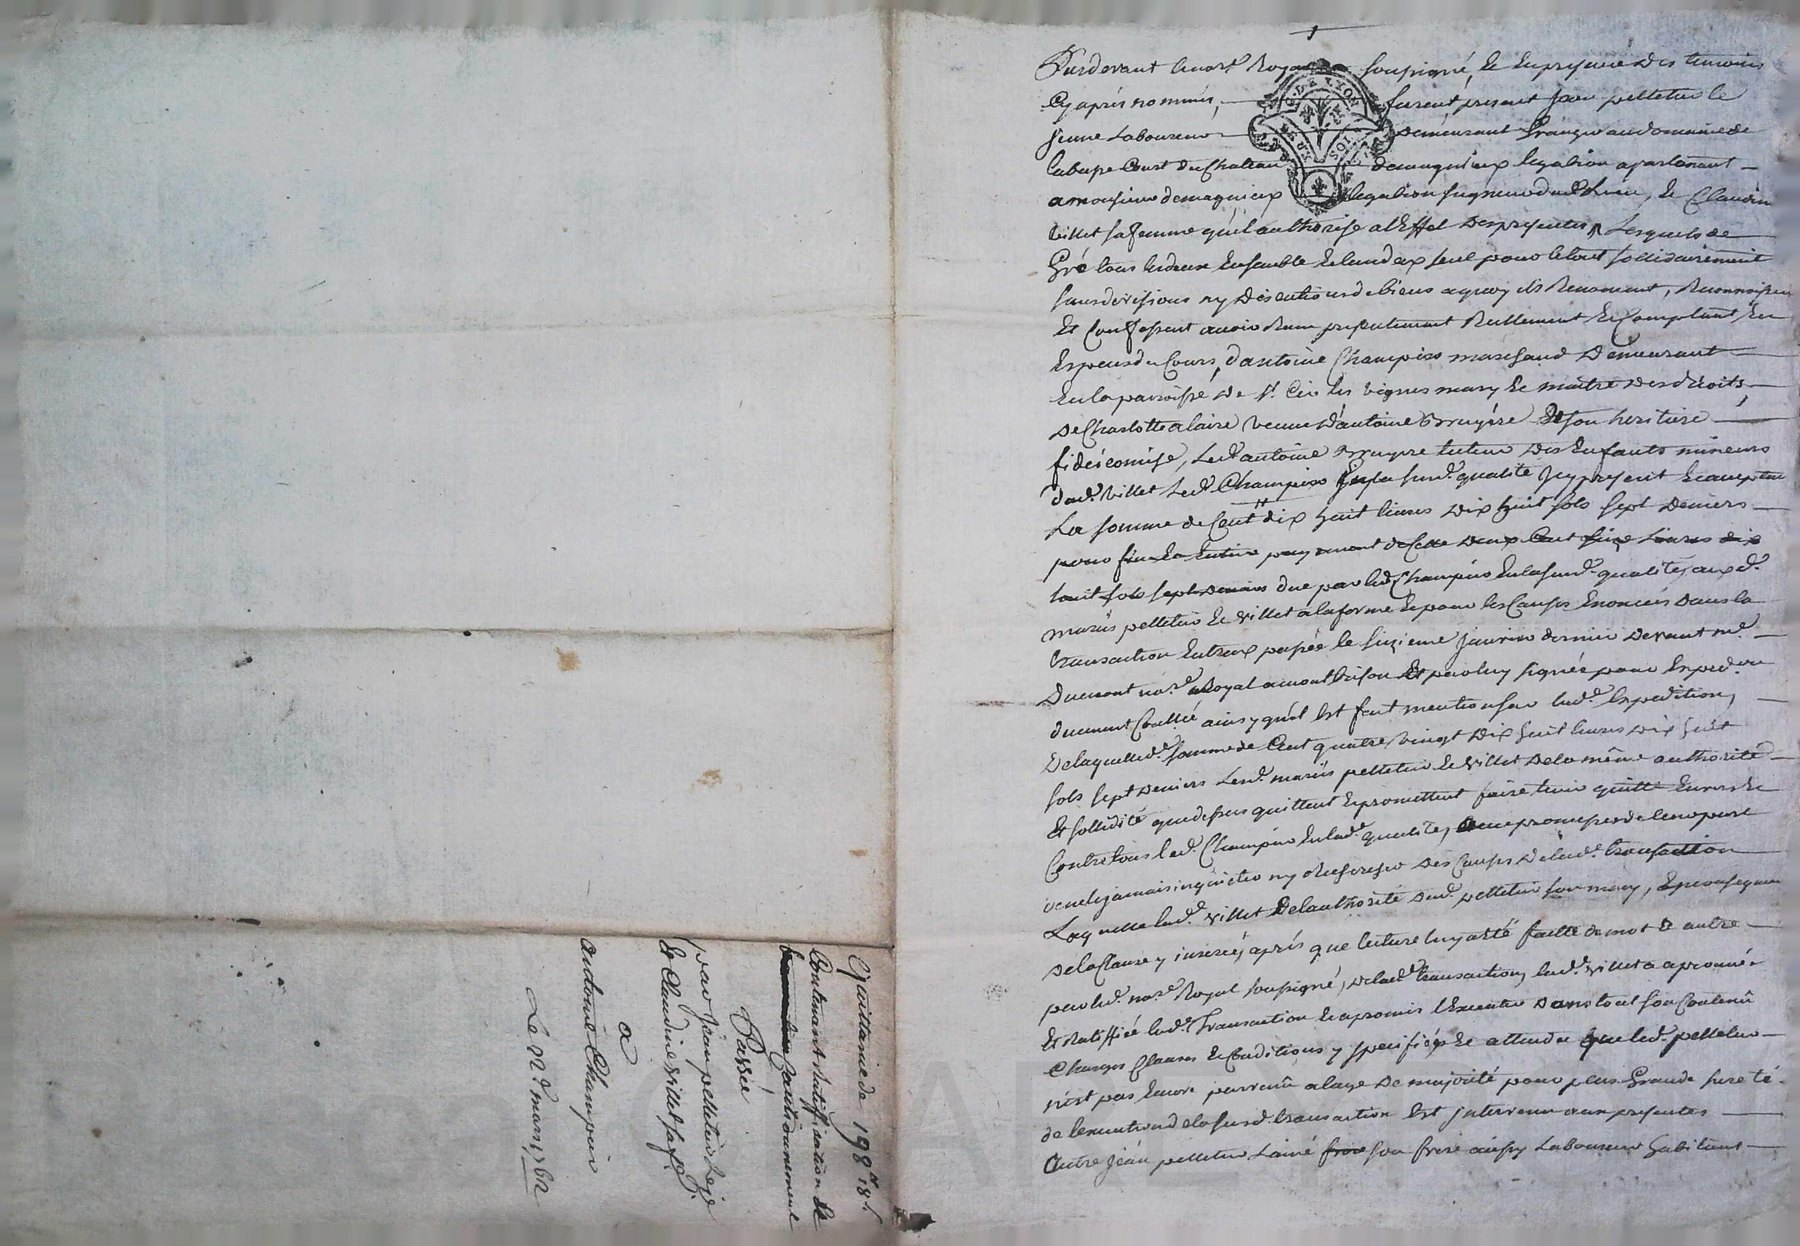 Pardevant le no.re Royal soussigné, Et En presence Des temoins
Cy aprés nommés, furent present Jean pelletier le
jeune Laboureur Demeurant Granger au domaine de
basse Court du Chateau de magnieux legabion apartenant
a monsieur de magnieux legabion seigneur dud. Lieu, Et Claudine
Villet sa femme qu'il authorise a l'Effet Des presentes, Lesquels de
Gré tous les deux Ensemble Et lun d'eux seul pour le tout sollidairement
sans divisions ny Discutions de biens a quoy ils Renoncent, Reconnoissent
Et Confessent avoir Receu presentement Reellement Et Comptant En
Especes du Cours, d'antoine Champier marchand Demeurant
En la paroisse De St. Cir les vignes mary Et maitre Des droits
De Charlotte alaire veuve D'antoine Bruyère Et son heritiere
fideicomise, Led. antoine Bruyere tuteur Des Enfants mineurs
dud. Villet Led. Champier En la susd. qualité Jcy present Et acceptant
La somme de Cent dix huit livres Dix huit sols sept Deniers
pour fin Et Entier payement de Celle Deux Cent livres dix
huit sols sept Deniers due par led. Champier En la susd. qualité, aux d.
mariés pelletier Et Villet a la forme Et pour les Causes Enoncées Dans la
transaction Entreux passée le sixieme Janvier dernier Devant me.
Dumont no.re Royal a montbrison Et par luy signée pour Expedon.
duement Conllée ainsy qu'il Est fait mention sur lad. Expedition,
De laquelle d. somme de Cent quatre vingt Dix huit livres Dix huit
sols sept Deniers Lesd. mariés pelletier Et Villet De la même authorité
Et sollidité que dessus quittent Et promettent faire tenir quitte Envers Et
Contre tous led. Champier En lad. qualité, avec promesses de
jamais inquieter ny Rechercher Des Causes De lad. transaction
Laquelle lad. Villet De lauthorité Dud. pelletier son mary, Et
De la Clause y inserée, aprés que lecture luy a été faitte de mot Et autre
par led. no.re Royal soussigné, De lad. transaction, lad. Villet a aprouvé
Et Ratiffié lad. Transaction Et a promis l'Executer Dans tout son Contenû
Charges Clauses Et Conditions y specifiées Et attendu que led. pelletier
n'est pas Encore parvenû a lage De majorité pour plus Grande sureté
de lexecution de la susd. transaction Est jntervenu aux presentes
Autre Jean pelletier Lainé son frere aussy Laboureur habitant
Quittance de 198 l. 18 s.
Contenant Ratiffication Et
Cautionnement
Passée
par Jean pelletier Le je.
Et Claudine Villet sa fe.
a
antoine Champier
Le 12e. mars 1762